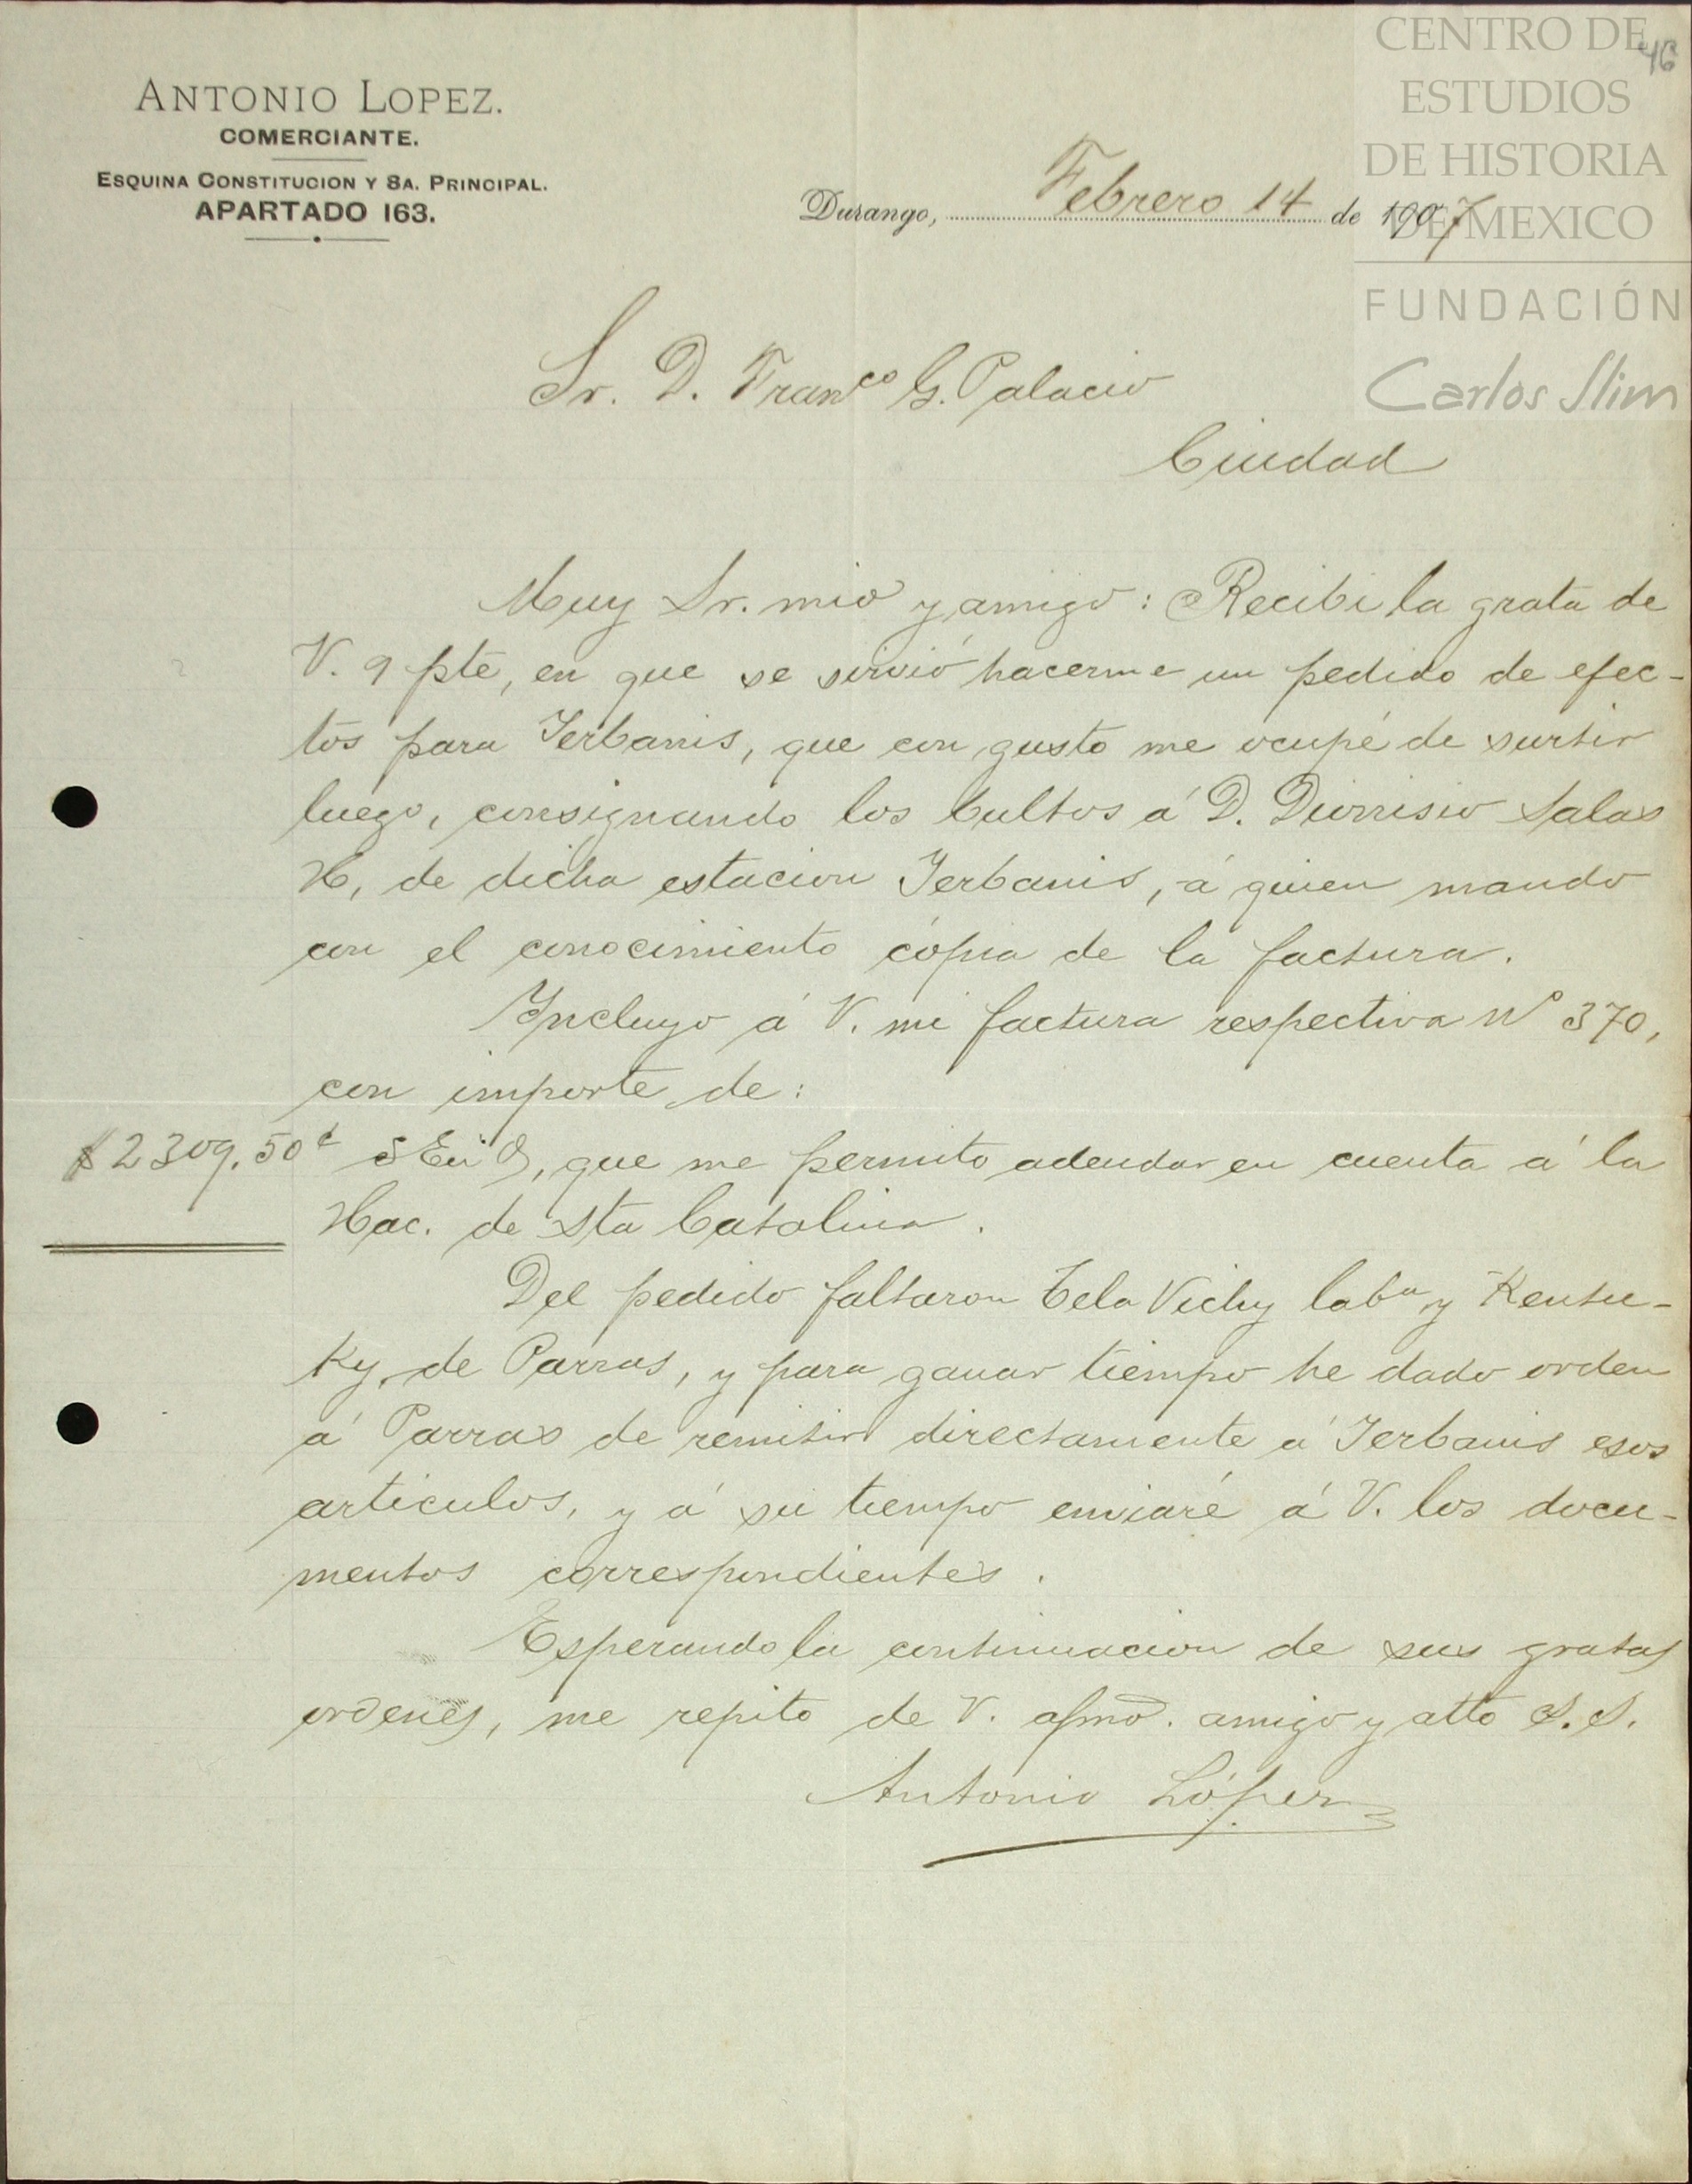 CENTRO DE
ESTUDIOS
DE HISTORIA
DE MEXICO
FUNDACIÓN
Carlos Slim
46
ANTONIO LOPEZ.
COMERCIANTE.
ESQUINA CONSTITUCION Y 8A. PRINCIPAL.
APARTADO 163.
Durango, Febrero 14 de 1907
Sr. D. Franco G. Palacio
Ciudad
Muy Sr. mio y amigo: Recibi la grata de
V. 9 pte, en que se sirvió hacerme un pedido de efec-
tos para Yerbanis, que con gusto me ocupé de surtir
luego, consignando los bultos á D. Dionisio Salas
H, de dicha estacion Yerbanis, á quien mando
con el conocimiento cópia de la factura.
Incluyo á V. mi factura respectiva No 370,
con importe de:
$2309.50c S E ú O, que me permito adeudar en cuenta á la
Hac. de Sta Catalina.
Del pedido faltaron Tela Vichy laba y Kentu-
ky, de Parras, y para ganar tiempo he dado orden
á Parras de remitir directamente á Yerbanis esos
articulos, y á su tiempo enviaré á V. los docu-
mentos correspondientes.
Esperando la continuacion de sus gratas
ordenes, me repito de V. afmo. amigo y atto S.S.
Antonio López